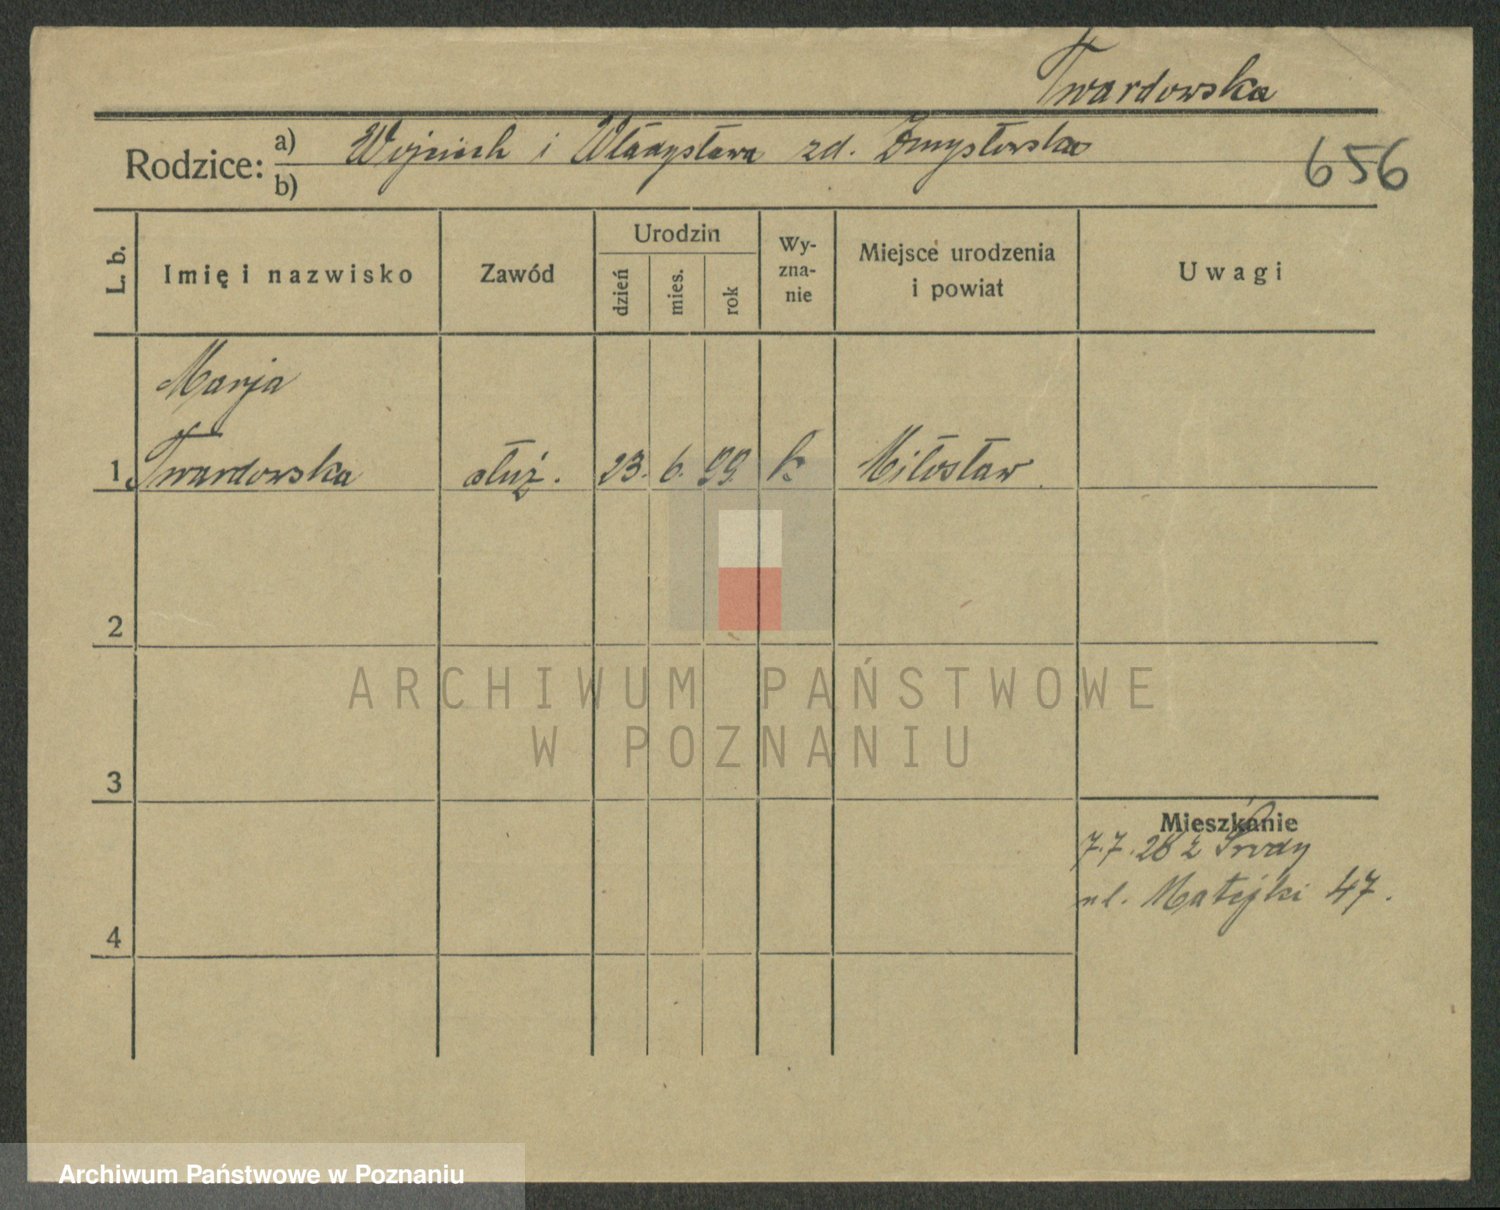 Twardowska
Rodzice: a) Wojciech i Władysława zd. Zmysłowska
b)
656
L. b.
Imię i nazwisko
Zawód
Urodzin
dzień
mies.
rok
Wy-
zna-
nie
Miejsce urodzenia
i powiat
Uwagi
Marja
1 Twardowska służ. 23. 6. 99. k Miłosław
2
3
4
Mieszkanie
7.7.28 z Środy
ul. Matejki 47.
ARCHIWUM PAŃSTWOWE
W POZNANIU
Archiwum Państwowe w Poznaniu